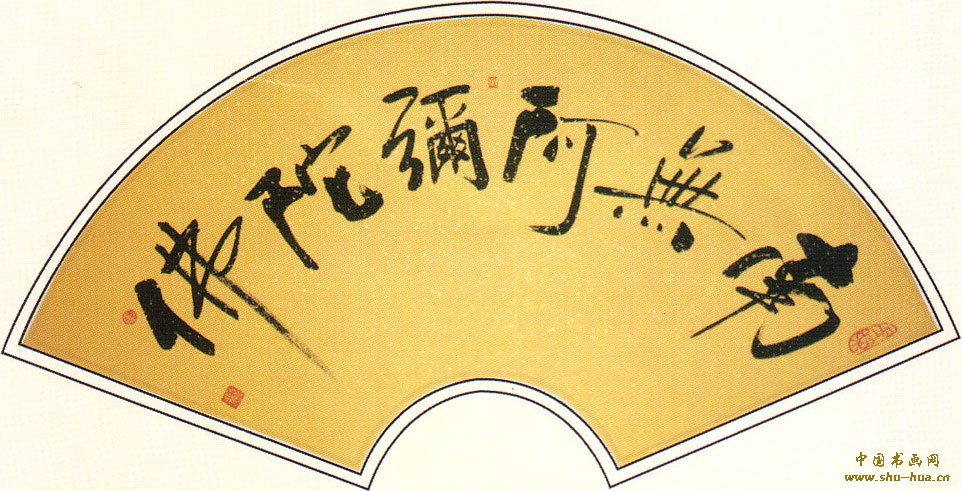 南無阿彌陀佛
中国书画网
www.shu-hua.cn